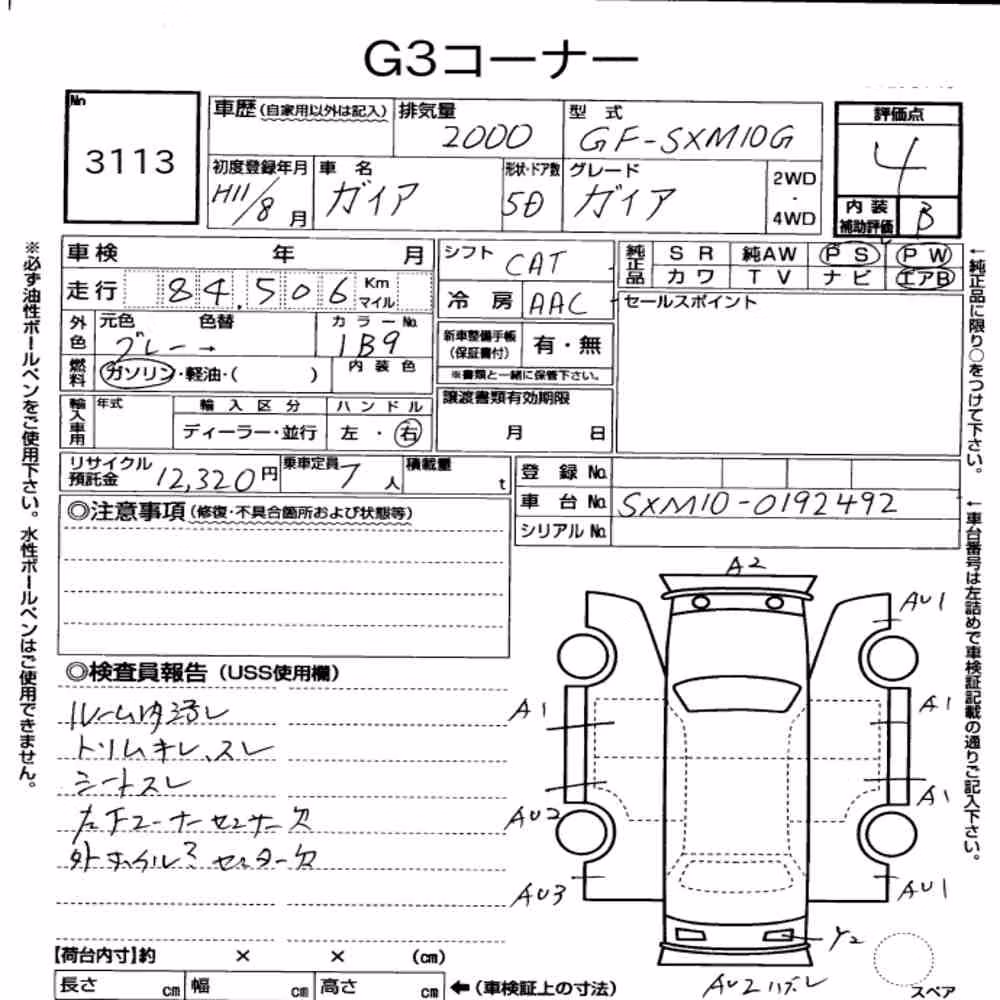 G3コーナー
No
3113
車歴(自家用以外は記入)
排気量
2000
型式
GF-SXM10G
評価点
4
初度登録年月
H11/8月
車名
ガイア
形状・ドア数
5D
グレード
ガイア
2WD
・
4WD
内装
補助評価
B
車検 年 月
走行 84,506 Km
マイル
シフト
CAT
冷房
AAC
純正品
SR 純AW PS PW
カワ TV ナビ エアB
セールスポイント
外色
元色 色替
グレー→
カラーNo.
1B9
燃料
ガソリン・軽油・( )
内装色
新車整備手帳
(保証書付)
有・無
※書類と一緒に保管下さい。
譲渡書類有効期限
月 日
輸入車用
年式
輸入区分
ディーラー・並行
ハンドル
左・右
リサイクル
預託金 12,320円
乗車定員 7人
積載量 t
登録No.
車台No. SXM10-0192492
シリアルNo.
◎注意事項(修復・不具合箇所および状態等)
◎検査員報告(USS使用欄)
トリムキレ、スレ
シートスレ
A2
AU1
A1
A1
AU2
A1
AU3
AU1
Y2
AU2
スペア
【荷台内寸】約 × × (cm)
長さ cm 幅 cm 高さ cm
←(車検証上の寸法)
※必ず油性ボールペンをご使用下さい。水性ボールペンはご使用できません。
←純正品に限り○をつけて下さい。
←車台番号は左詰めで車検証記載の通りご記入下さい。